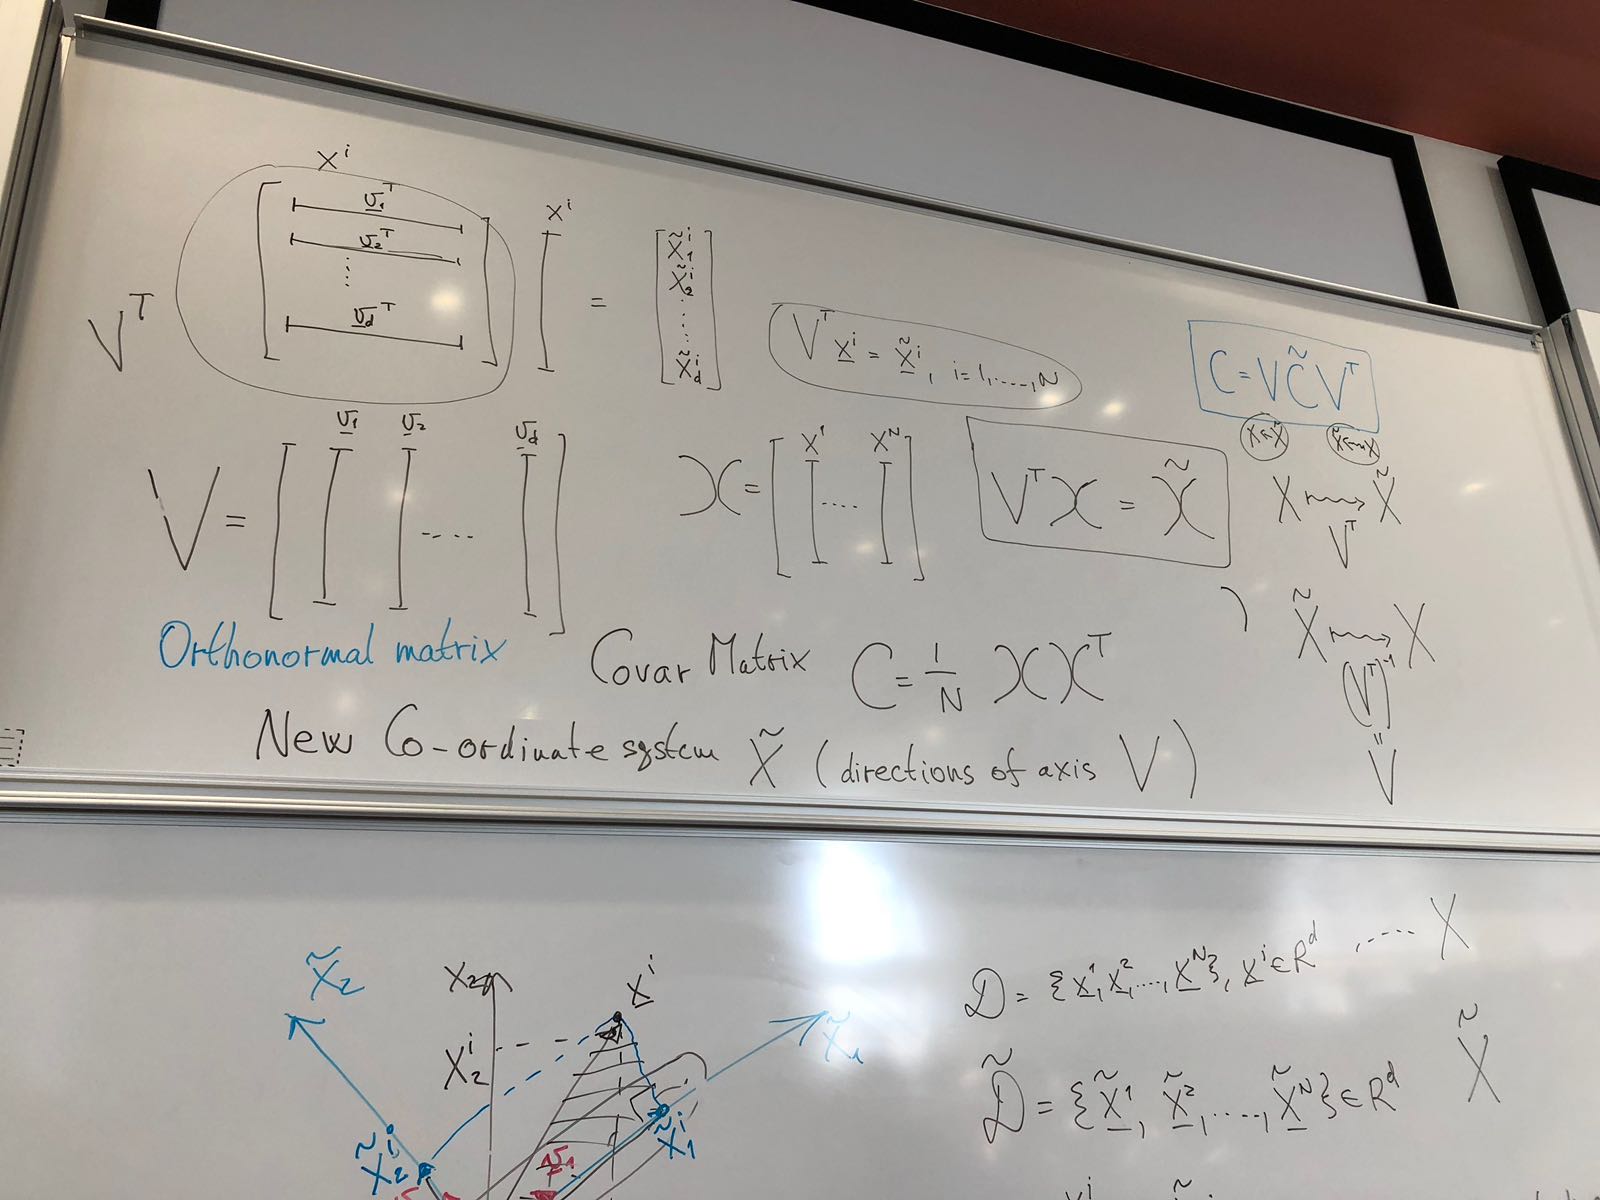 Xⁱ
V^T [ v̲₁^T v̲₂^T ⋮ v̲_d^T ] Xⁱ = [ X̃₁ⁱ X̃₂ⁱ ⋮ X̃_dⁱ ]
V^T X̲ⁱ = X̲̃ⁱ, i=1,....,N
C = V C̃ V^T
X←X̃ X̃←X
V = [ v̲₁ v̲₂ .... v̲_d ]
X = [ X¹ .... X^N ]
V^T X = X̃
X ⟿ X̃
V^T
Orthonormal matrix
Covar Matrix C = 1/N X X^T
X̃ ⟿ X
(V^T)⁻¹
"
V
New Co-ordinate system X̃ (directions of axis V)
X̃₂
X₂
X̲ⁱ
X̃₁
X₂ⁱ
X̃₂ⁱ
X̃₁ⁱ
v̲₁
D = {X̲¹, X̲², ..., X̲^N}, X̲ⁱ ∈ R^d, .... X
D̃ = {X̲̃¹, X̲̃², ...., X̲̃^N} ∈ R^d X̃